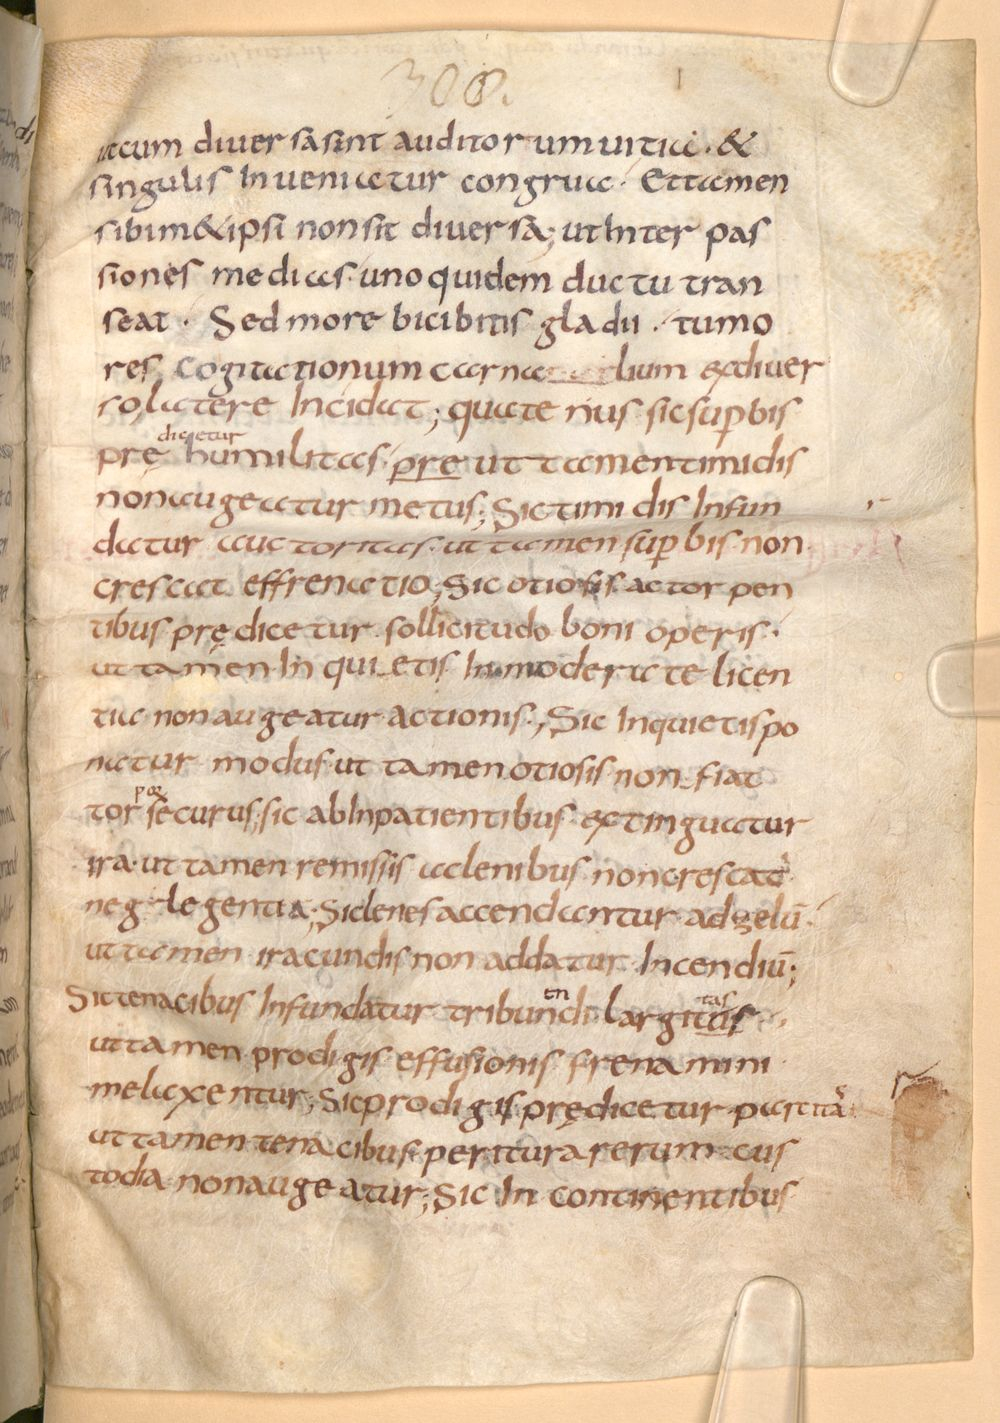 308.
ut cum diuersa sint auditorum uitia · &
singulis inueniatur congrua · Et tamen
sibim&ipsi non sit diuersa; ut inter pas
siones medias · uno quidem ductu tran
seat · Sed more bicibitis gladii · tumo
res cogitationum carna lium ex diuer
so latere incidat; quatenus sic sup bis
dicetur
prę humilitas · pre ut tamen timidis
non augeatur metus; Sic timidis infun
datur auctoritas · ut tamen sup bis non
crescat effrenatio; Sic otiosis ac torpen
tibus prędicetur sollicitudo boni operis ·
ut tamen inquietis inmoderate licen
tia non augeatur actionis; Sic inquietis po
natur modus · ut tamen otiosis non fiat
por
tor securus; sic ab inpatientibus extinguatur
ira · ut tamen remissis ac lenibus non crescat
neglegentia; Sic lenes accendantur ad zelū ·
ut tamen iracundis non addatur incendiū;
en tas
Sic tenacibus infundatur tribundi largitus ·
ut tamen prodigis effusionis frena mini
me laxentur; Sic prodigis prędicetur parcitas
ut tamen tenacibus peritura rerum cus
todia non augeatur; Sic incontinentibus